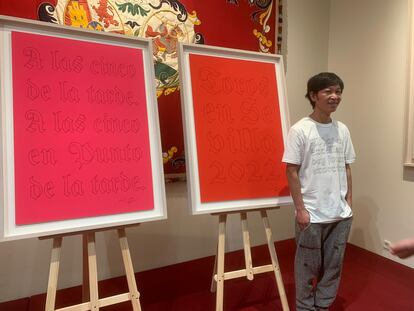 A las cinco
de la tarde.
A las cinco
en Punto
de la tarde.
Toros
en Se
villa
2022